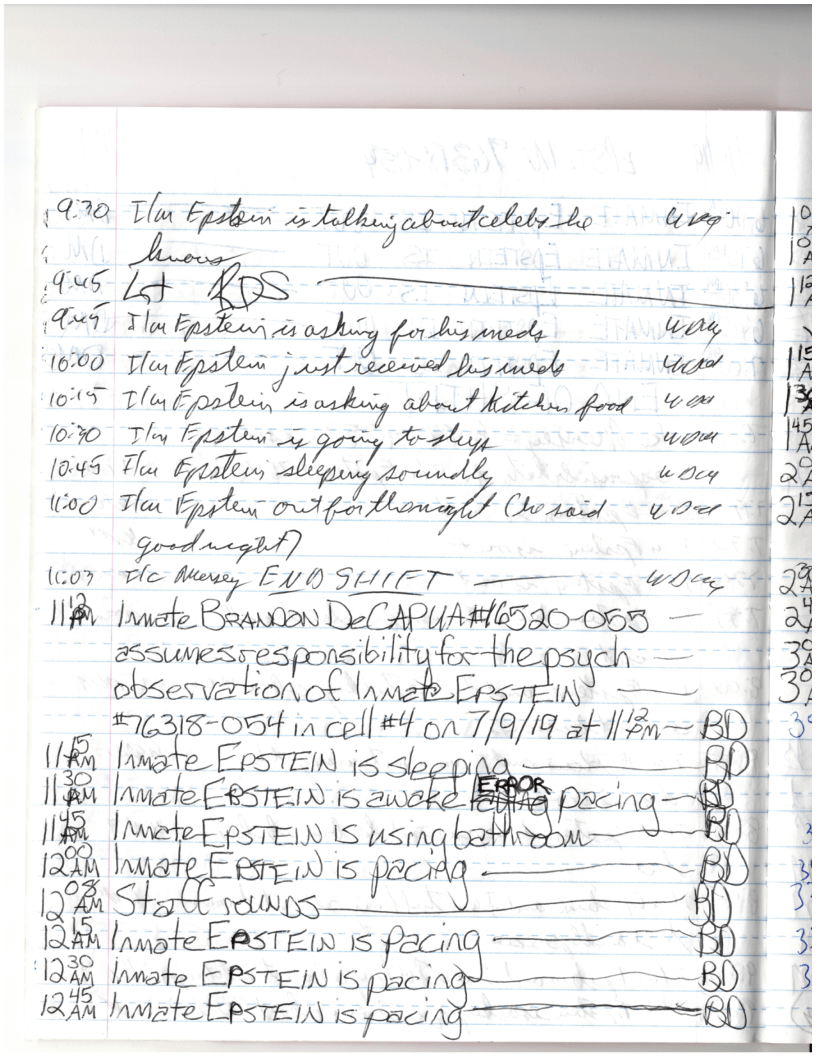 9:30 I/m Epstein is talking about celebs he
knows
9:45 Lt RDS
9:45 I/m Epstein is asking for his meds
10:00 I/m Epstein just received his meds
10:15 I/m Epstein is asking about kitchen food
10:30 I/m Epstein is going to sleep
10:45 I/m Epstein sleeping soundly
11:00 I/m Epstein out for the night (he said
good night)
11:03 I/c Mersey END SHIFT
11 12 PM Inmate BRANDON DeCAPUA #16520-055
assumes responsibility for the psych
observation of Inmate EPSTEIN
#76318-054 in cell #4 on 7/9/19 at 11 12 PM BD
11 15 PM Inmate EPSTEIN is sleeping BD
ERROR
11 30 AM Inmate EPSTEIN is awake pacing BD
11 45 PM Inmate EPSTEIN is using bathroom BD
12 00 AM Inmate EPSTEIN is pacing BD
12 08 AM Staff rounds BD
12 15 AM Inmate EPSTEIN is pacing BD
12 30 AM Inmate EPSTEIN is pacing BD
12 45 AM Inmate EPSTEIN is pacing BD